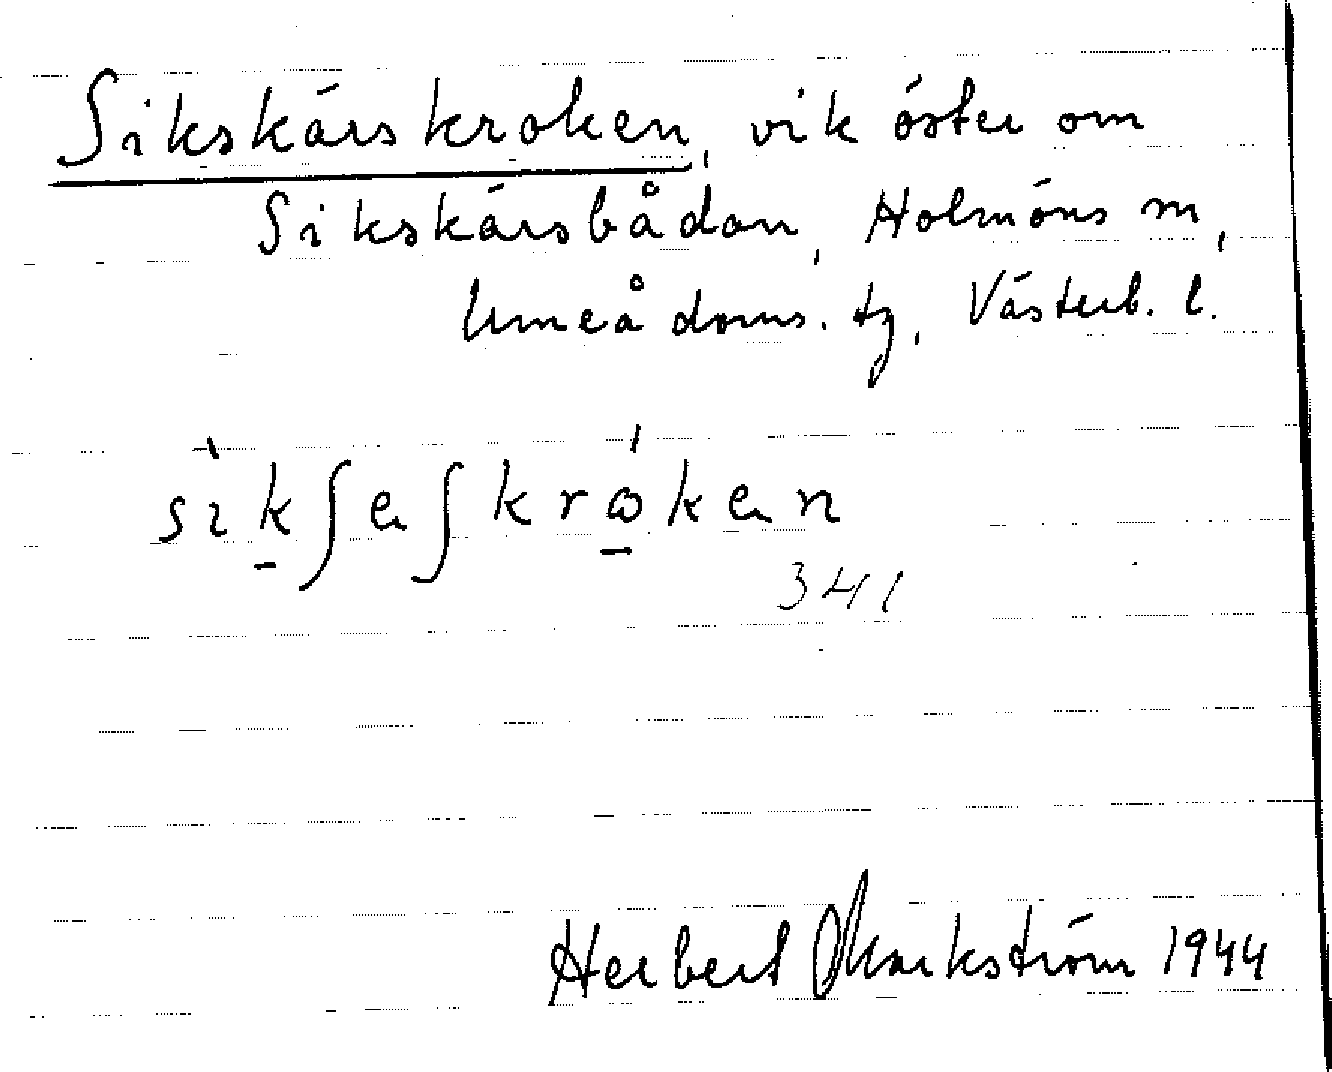 Sikskärskroken, vik öster om
Sikskärsbådan, Holmöns sn,
Umeå doms. tg, Västerb. l.
sìkʃeʃkróken
341
Herbert Markström 1944